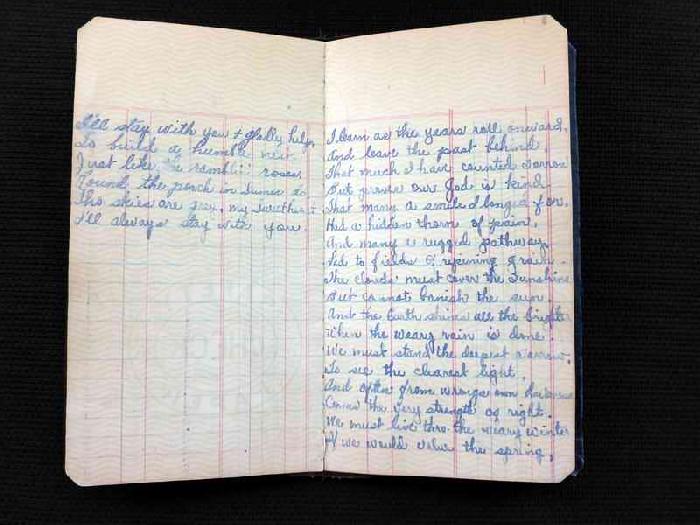 I'll stay with you & gladly help
To build a humble nest
Just like the ramblin roses
'Round the porch in Sunset
Tho skies are gray, my sweetheart
I'll always stay with you.
I learn as the years roll onward,
And leave the past behind,
That much I have counted sorrow
But proves our God is kind.
That many a smile I longed for,
Had a hidden thorn of pain,
And many a rugged pathway
Led to fields of ripening grain.
The clouds must cover the Sunshine
But cannot banish the sun,
And the Earth shines all the brighter
When the weary rain is done.
We must stand the deepest sorrow.
To see the clearest light,
And often from wrongs own darkness
Comes the very strength of right.
We must live thro the weary winter
If we would value the spring,